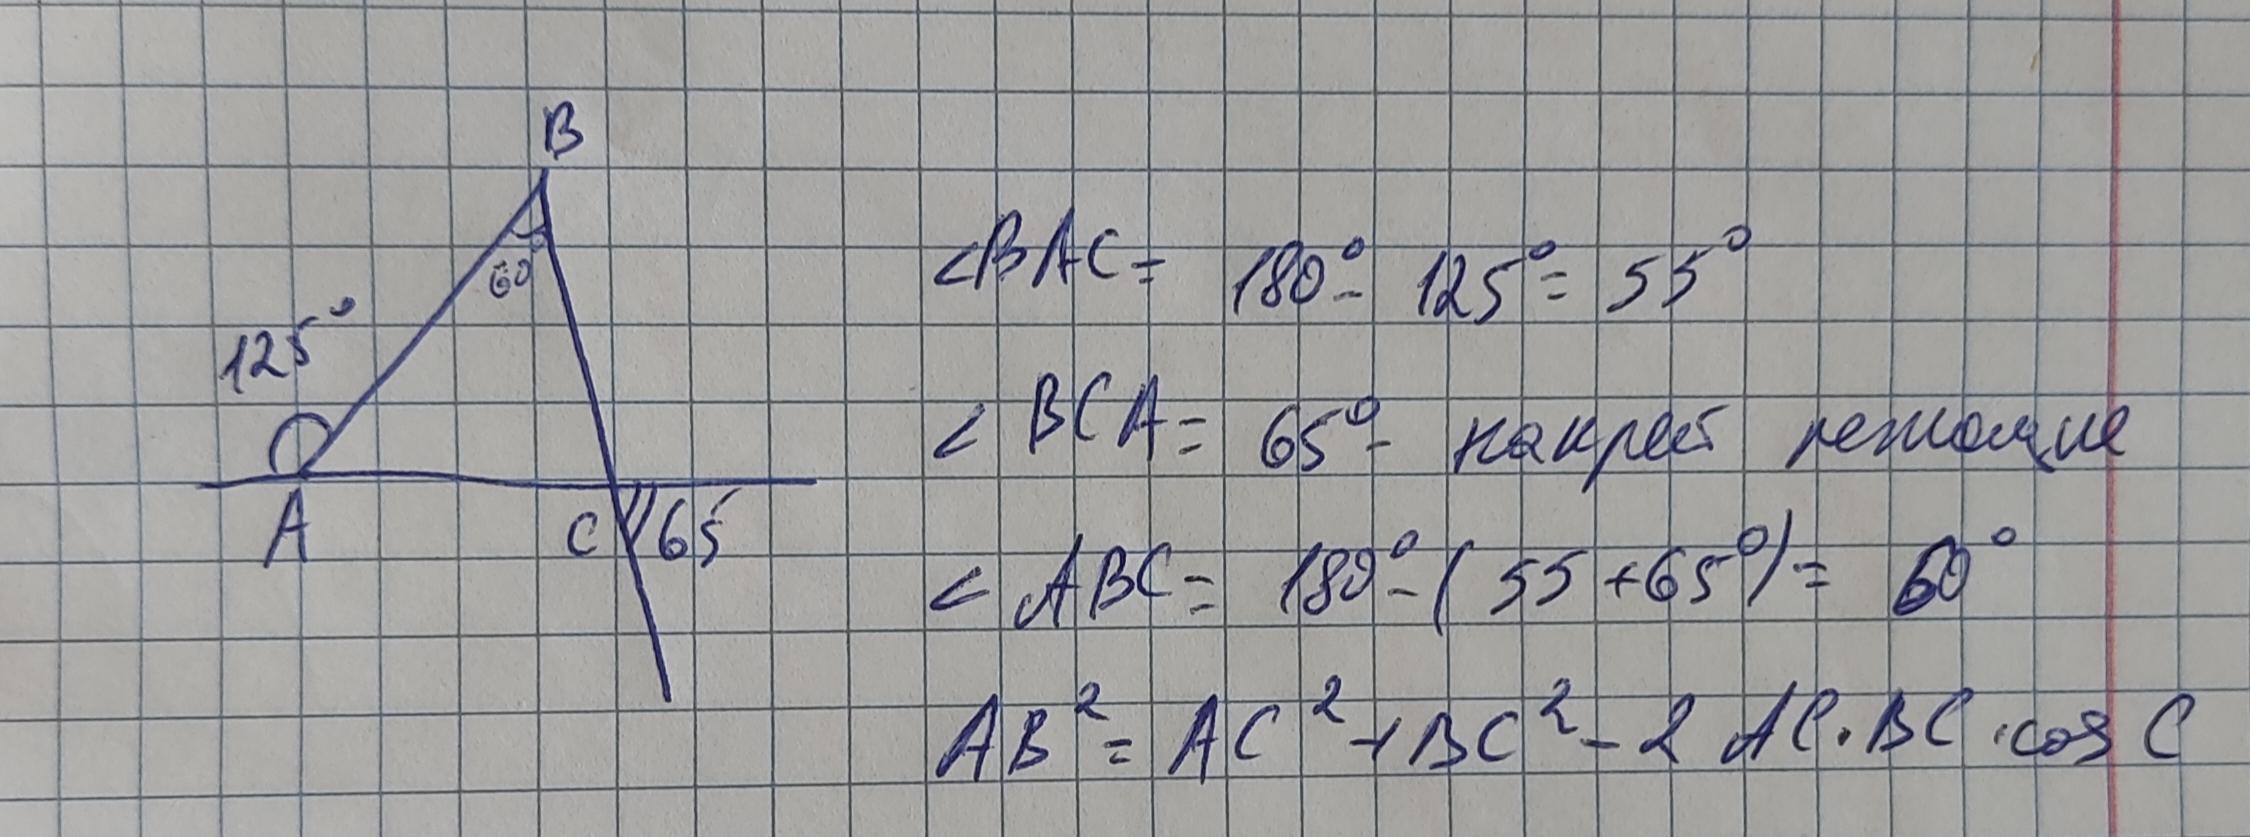 B
60
125°
A
C
65
<BAC = 180° - 125° = 55°
< BCA = 65° - накрест лежащие
< ABC = 180° - ( 55 + 65°) = 60°
AB² = AC² + BC² - 2 AC · BC · cos C